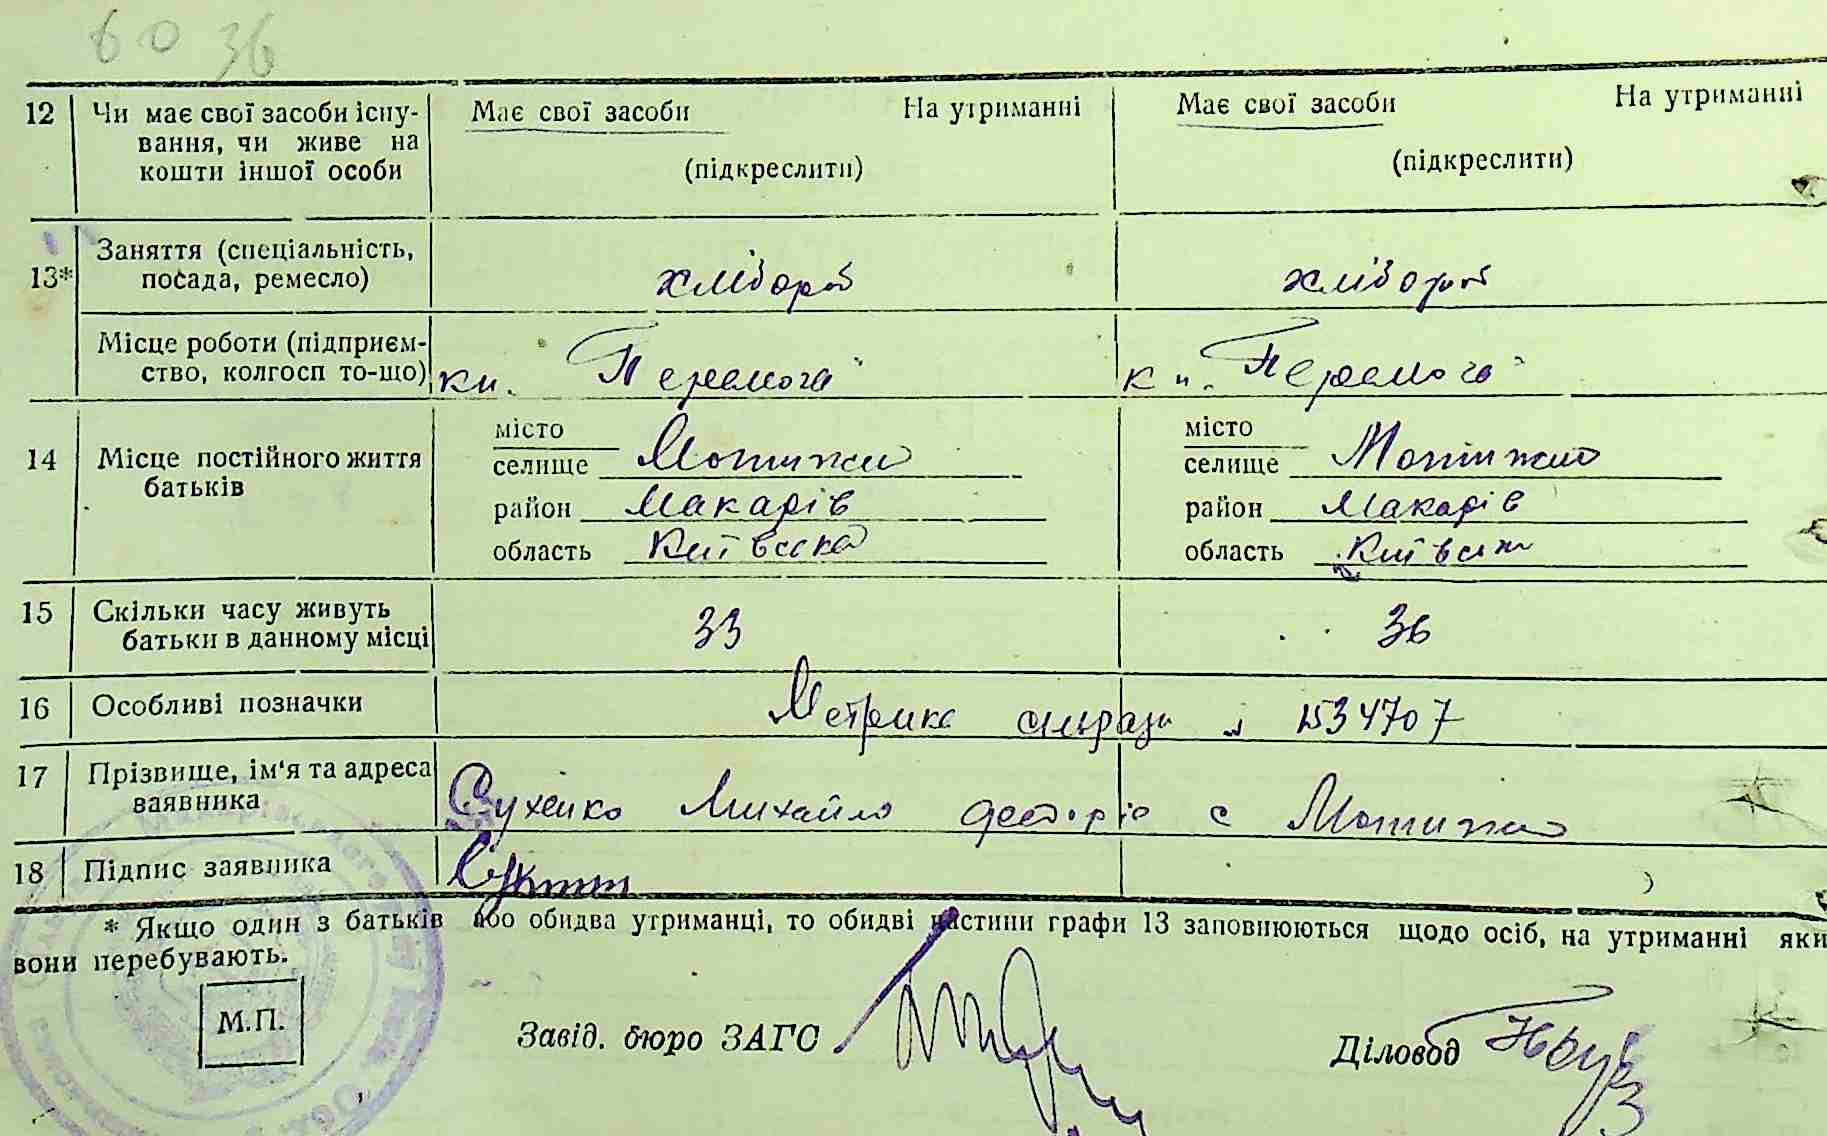 60 36
12 Чи має свої засоби існу- Має свої засоби На утриманні Має свої засоби На утриманні
вання, чи живе на
кошти іншої особи (підкреслити) (підкреслити)
Заняття (спеціальність,
13* посада, ремесло) хлібороб хлібороб
Місце роботи (підприєм-
ство, колгосп то-що) кп. "Перемога" кп. "Перемога"
місто місто
14 Місце постійного життя селище Мотижин селище Мотижин
батьків район Макарів район Макарів
область Київська область Київська
15 Скільки часу живуть
батьки в данному місці 33 36
16 Особливі позначки Метрика 534707
17 Прізвище, ім'я та адреса
заявника Сухенко Михайло с Мотижин
18 Підпис заявника
* Якщо один з батьків або обидва утриманці, то обидві частини графи 13 заповнюються щодо осіб, на утриманні яки
вони перебувають.
М.П.
Завід. бюро ЗАГС Діловод